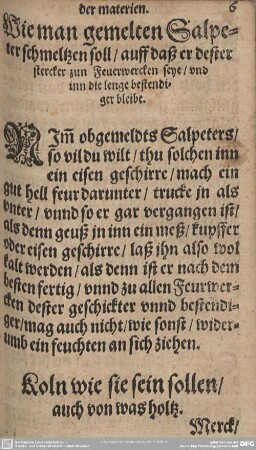 der materien. 6
Wie man gemelten Salpe-
ter schmeltzen soll / auff daß er dester
stercker zun Feuerwercken seye / vnd
inn die lenge bestendi-
ger bleibe.
NIm̃ obgemeldts Salpeters /
so vil du wilt / thu solchen inn
ein eisen geschirre / mach ein
gut hell feur darunter / trucke jn als
vnter / vnnd so er gar vergangen ist /
als denn geuß jn inn ein meß / kupffer
oder eisen geschirre / laß jhn also wol
kalt werden / als denn ist er nach dem
besten fertig / vnnd zu allen Feurwer-
cken dester geschickter vnnd bestendi-
ger / mag auch nicht / wie sonst / wider-
umb ein feuchten an sich ziehen.
Koln wie sie sein sollen /
auch von was holtz.
Merck /